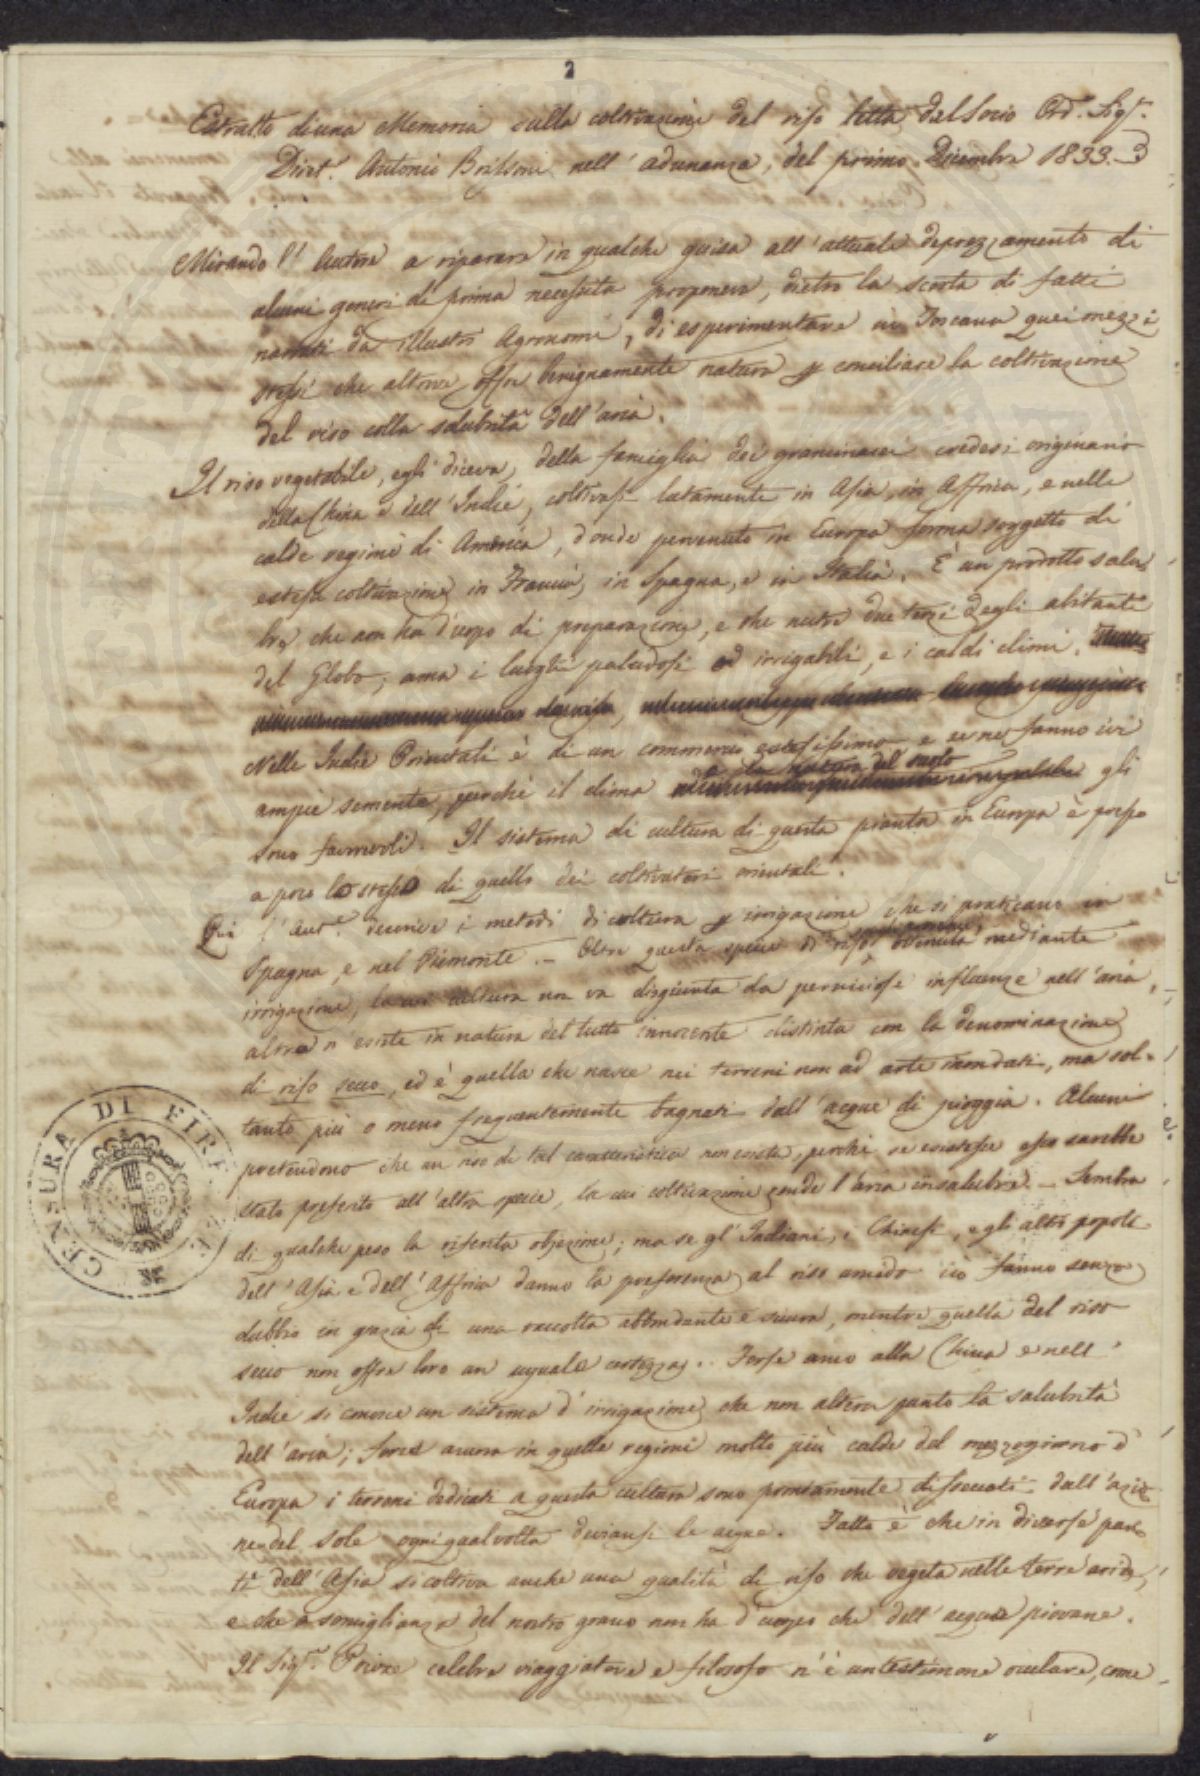 2
Estratto di una Memoria sulla coltivazione del riso letta dal Socio Ord. Sigr.
Dirett. Antonio nell'adunanza, del primo Dicembre 1833.
Mirando l'Autore a riparare in qualche guisa all'attuale deprezzamento di
alcuni generi di prima necessità proponeva, dietro la scorta di fatti
narrati da illustri Agronomi, di esperimentare in Toscana quei mezzi
stessi che altrove offre benignamente natura p conciliare la coltivazione
del riso colla salubrità dell'aria.
Il riso vegetabile, egli diceva, della famiglia dei graminacei credesi originario
della China e dell'Indie, coltivasi latamente in Asia, in Affrica, e nelle
calde regioni di America, donde pervenuto in Europa forma soggetto di
estesa coltivazione in Francia, in Spagna, e in Italia. È un prodotto salu
bre che non ha d'uopo di preparazione, e che nutre due terzi degli abitanti
del Globo; ama i luoghi paludosi ed irrigabili, e i caldi climi.
Nelle Indie Orientali è di un commercio estesissimo e se ne fanno ivi
ampie semente, perché il clima e la natura del suolo gli
sono favorevoli. Il sistema di cultura di questa pianta in Europa è presso
a poco lo stesso di quello dei coltivatori orientali.
Qui l'Aut.e descrive i metodi di coltura p irrigazione che si praticano in
Spagna, e nel Piemonte. - Oltre questa specie di riso ottenuta mediante
irrigazione, la cui cultura non va disgiunta da perniciose influenze nell'aria,
altra n'esiste in natura del tutto innocente distinta con la denominazione
di riso secco, ed è quella che nasce nei terreni non ad arte inondati, ma sol-
tanto più o meno frequentemente bagnati dall'acque di pioggia. Alcuni
pretendono che un riso di tal caratteristica non esista, perché se esistesse esso sarebbe
stato preferito all'altra specie, la cui coltivazione rende l'aria insalubre. - Sembra
di qualche peso la riferita obiezione; ma se gl'Indiani, i Chinesi, e gli altri popoli
dell'Asia e dell'Affrica danno la preferenza al riso umido ciò fanno senza
dubbio in grazia di una raccolta abbondante e sicura, mentre quella del riso
secco non offre loro un uguale certezza. Forse anco alla China e nell'
Indie si conosce un sistema d'irrigazione che non altera punto la salubrità
dell'aria; forse ancora in quelle regioni molto più calde del mezzogiorno d'
Europa i terreni dedicati a questa cultura sono prontamente disseccati dall'azio
ne del sole ogni qualvolta deviansi le acque. Fatto è che in diverse par
ti dell'Asia si coltiva anche una qualità di riso che vegeta nelle terre aride,
e che a somiglianza del nostro grano non ha d'uopo che dell'acque piovane.
Il Sigr. Poivre celebre viaggiatore e filosofo n'è un testimone oculare, come
CENSURA DI FIRENZE